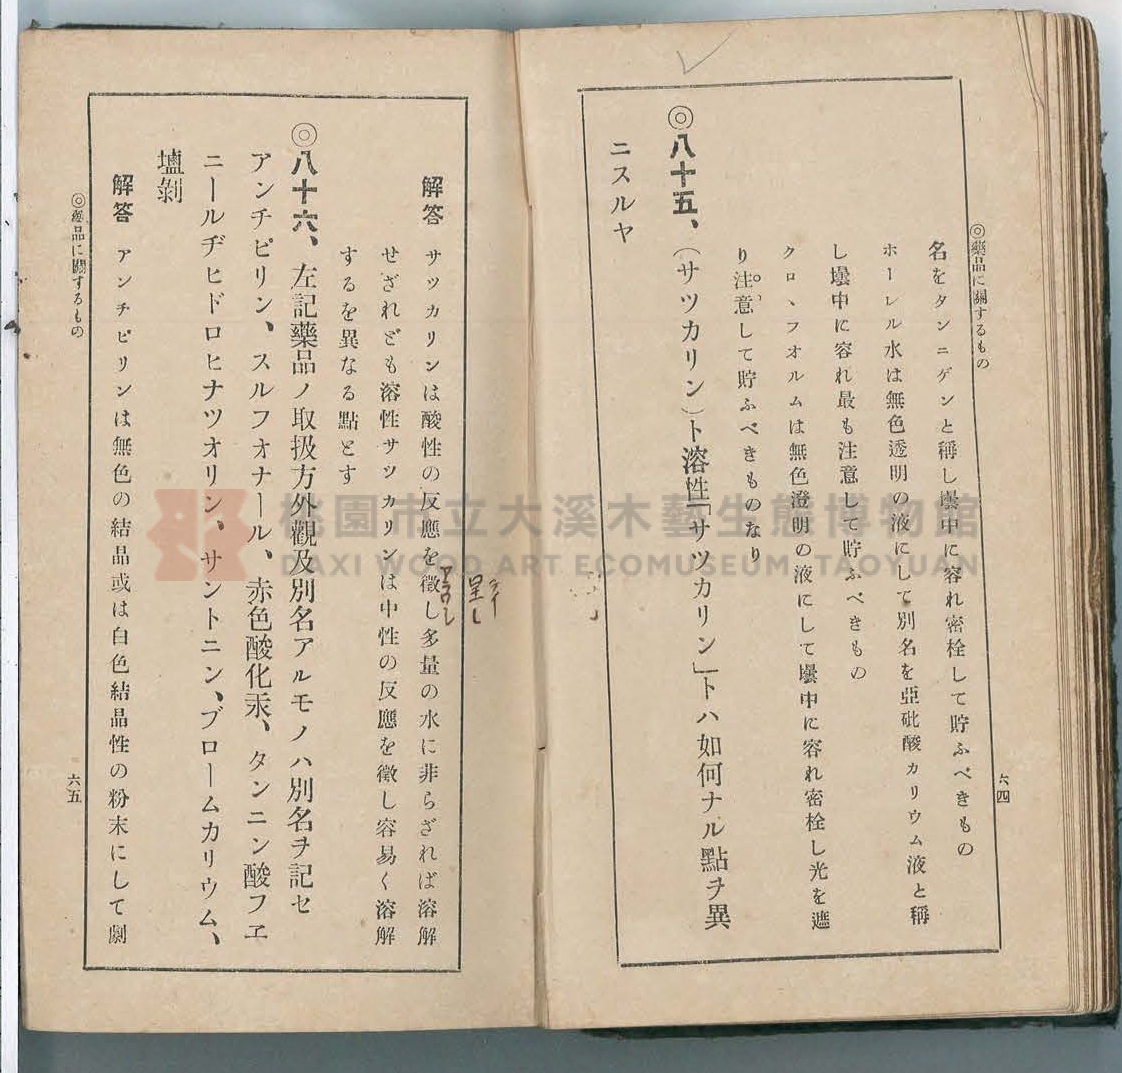 ◎藥品に關するもの
六四
名をタンニゲンと稱し壜中に容れ密栓して貯ふべきもの
ホーレル水は無色透明の液にして別名を亞砒酸カリウム液と稱
し壜中に容れ最も注意して貯ふべきもの
クロヽフオルムは無色澄明の液にして壜中に容れ密栓し光を遮
り注意して貯ふべきものなり
◎八十五、(サツカリン)ト溶性「サツカリン」トハ如何ナル點ヲ異
ニスルヤ
解答 サツカリンは酸性の反應を徵し多量の水に非らざれば溶解
呈し
せざれども溶性サツカリンは中性の反應を徵し容易く溶解
するを異なる點とす
◎八十六、左記藥品ノ取扱方外觀及別名アルモノハ別名ヲ記セ
アンチピリン、スルフオナール、赤色酸化汞、タンニン酸フヱ
ニールヂヒドロヒナツオリン、サントニン、ブロームカリウム、
壚剝
解答 アンチピリンは無色の結晶或は白色結晶性の粉末にして劇
◎藥品に關するもの
六五
桃園市立大溪木藝生態博物館
DAXI WOOD ART ECOMUSEUM, TAOYUAN